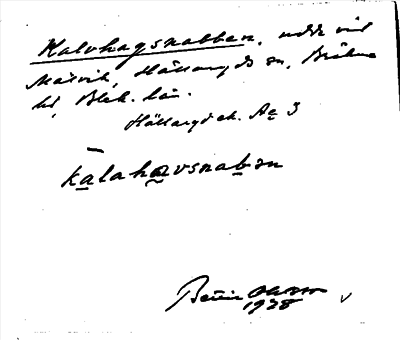 Kalvhagsnabben, udde vid
Matvik, Hällaryds sn, Bräkne
hd, Blek. län.
Hällaryd ek. Ae 3
kalahavsnabən
Bertil Olsson
1928